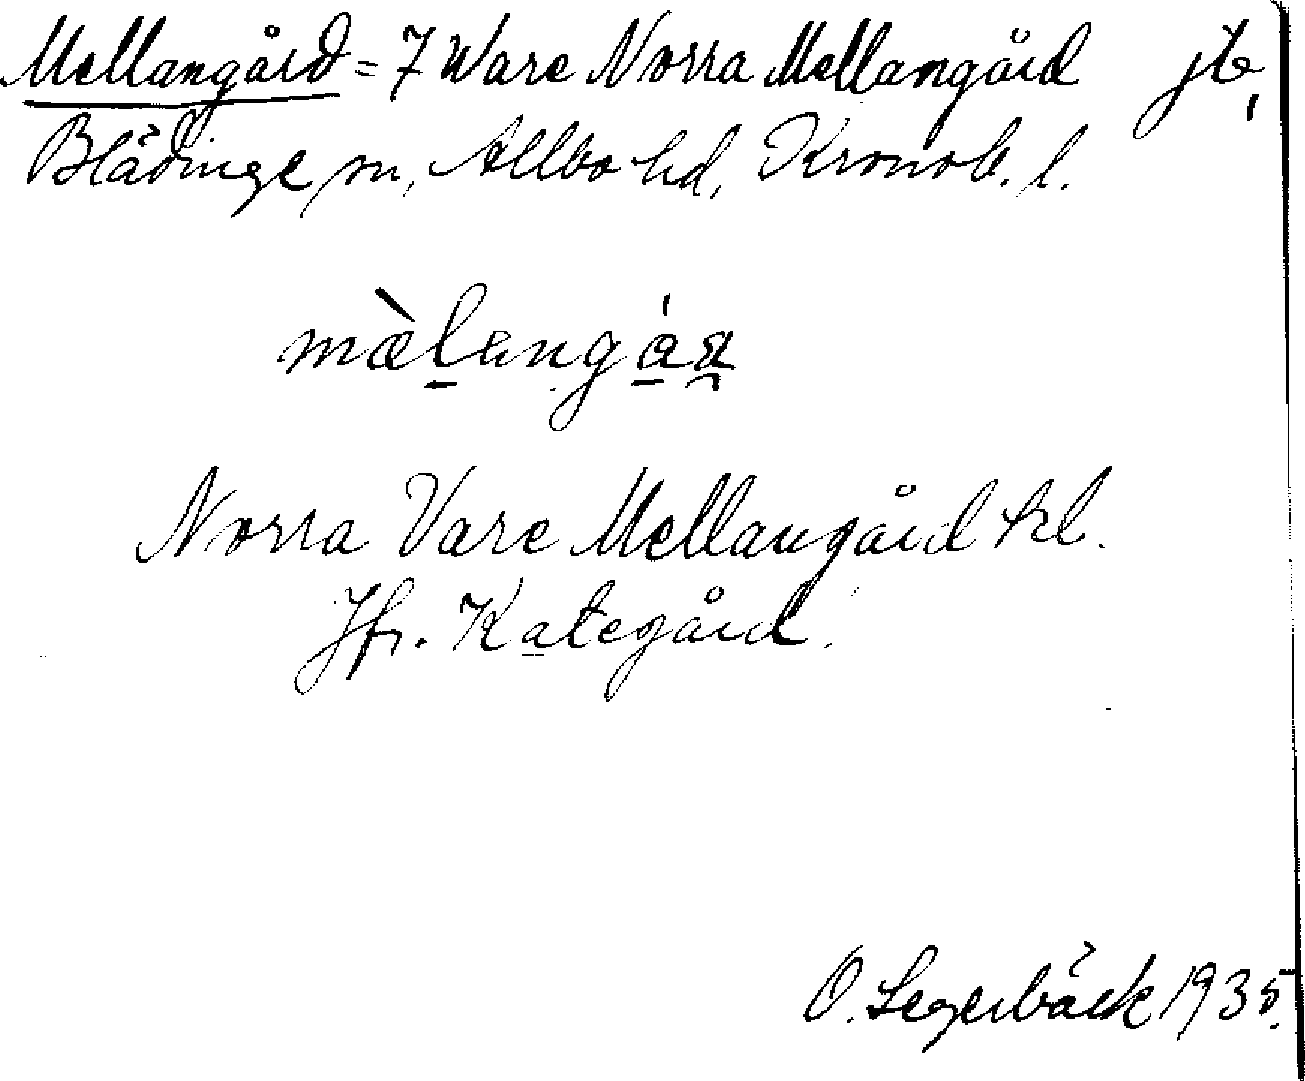 Mellangård = 7 Ware Norra Mellangård jb,
Blädinge sn, Allbo hd, Kronob. l.
Norra Vare Mellangård kl.
Jfr. Kategård.
O. Segerbäck 1935.